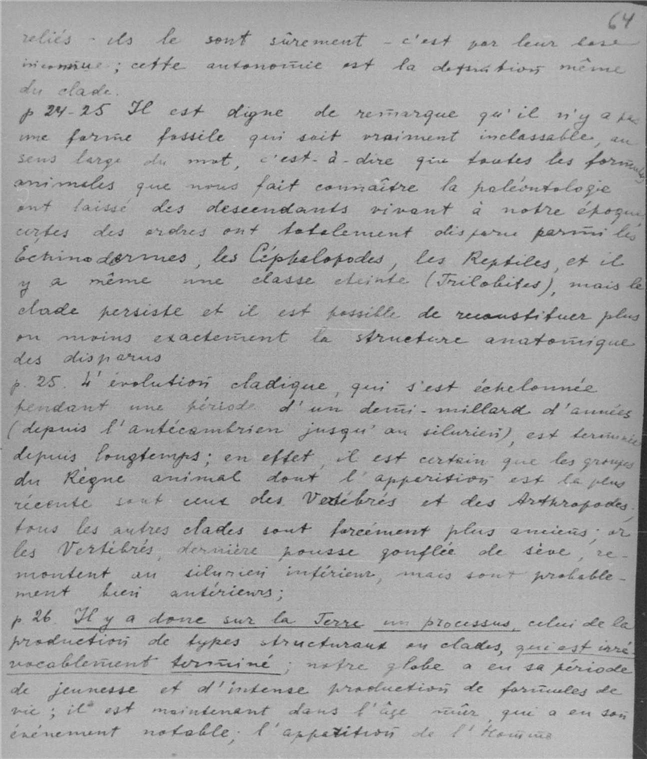 64
reliés - ils le sont sûrement - c'est par leur base
inconnue; cette autonomie est la définition même
du clade.
p 24-25 Il est digne de remarque qu'il n'y a pas
une forme fossile qui soit vraiment inclassable, au
sens large du mot, c'est-à-dire que toutes les formules
animales que nous fait connaître la paléontologie
ont laissé des descendants vivant à notre époque,
certes des ordres ont totalement disparu parmi les
Echinodermes, les Céphalopodes, les Reptiles, et il
y a même une classe éteinte (Trilobites), mais le
clade persiste et il est possible de reconstituer plus
ou moins exactement la structure anatomique
des disparus
p. 25. L'évolution cladique, qui s'est échelonnée
pendant une période d'un demi-millard d'années
(depuis l'antécambrien jusqu'au silurien), est terminée
depuis longtemps; en effet, il est certain que les groupes
du Règne animal dont l'apparition est la plus
récente sont ceux des Vertébrés et des Arthropodes;
tous les autres clades sont forcément plus anciens; or
les Vertébrés, dernière pousse gonflée de sève, re-
montent au silurien inférieur, mais sont probable-
ment bien antérieurs;
p 26. Il y a donc sur la Terre un processus, celui de la
production de types structuraux ou clades, qui est irré-
vocablement terminé; notre globe a eu sa période
de jeunesse et d'intense production de formules de
vie; il est maintenant dans l'âge mûr, qui a eu son
événement notable; l'apparition de l'Homme